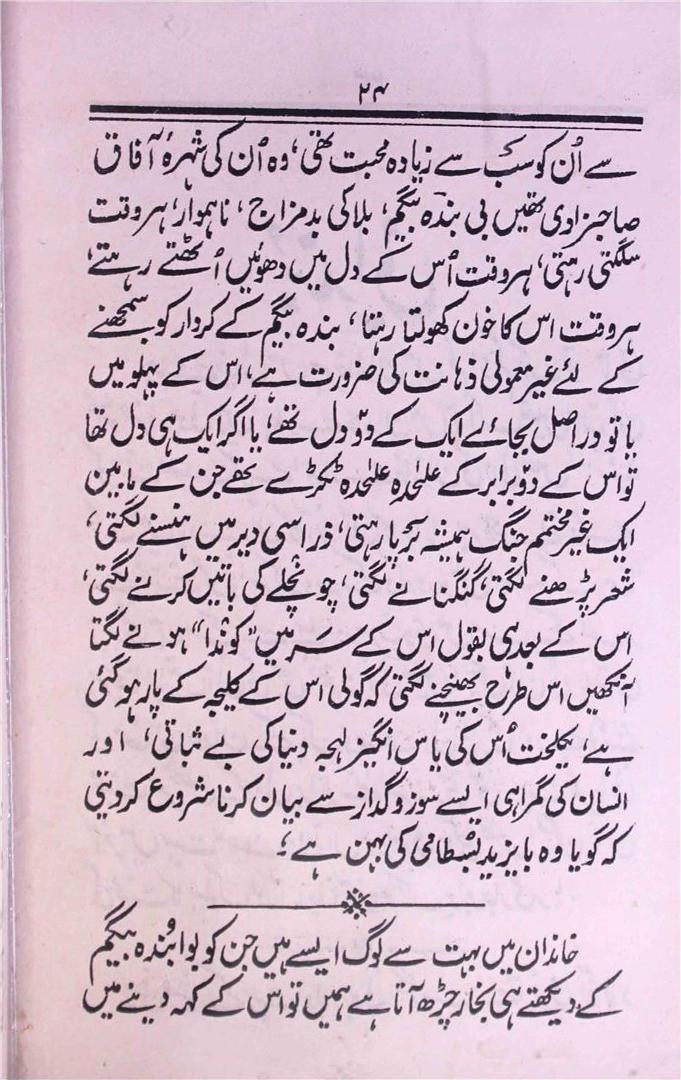 ۲۴
سے اُن کو سب سے زیادہ محبت تھی، وہ اُن کی شہرۂ آفاق
صاحبزادی تھیں بی بندہ بیگم، بلا کی بدمزاج، ناہموار، ہر وقت
سلگتی رہتی، ہر وقت اُس کے دل میں دھوئیں اُٹھتے رہتے،
ہر وقت اس کا خون کھولتا رہتا، بندہ بیگم کے کردار کو سمجھنے
کے لئے غیر معمولی ذہانت کی ضرورت ہے، اس کے پہلو میں
یا تو دراصل بجائے ایک کے دو دل تھے، یا اگر ایک ہی دل تھا
تو اس کے دو برابر کے علیٰحدہ علیٰحدہ ٹکڑے تھے جن کے مابین
ایک غیر مختتم جنگ ہمیشہ برپا رہتی، ذرا سی دیر میں ہنسنے لگتی،
شعر پڑھنے لگتی، گنگنانے لگتی، چونچلے کی باتیں کرنے لگتی،
اس کے بعد ہی بقول اس کے سر میں "کوندا" ہونے لگتا
آنکھیں اس طرح بھینچنے لگتی کہ گولی اس کے کلیجہ کے پار ہو گئی
ہے، یکلخت اُس کی یاس انگیز لہجہ دنیا کی بے ثباتی، اور
انسان کی گمراہی ایسے سوز و گداز سے بیان کرنا شروع کر دیتی
کہ گویا وہ بایزید بسطامی کی بہن ہے؛
خاندان میں بہت سے لوگ ایسے ہیں جن کو بوا بُندہ بیگم
کے دیکھتے ہی بخار چڑھ آتا ہے ہمیں تو اس کے کہہ دینے میں